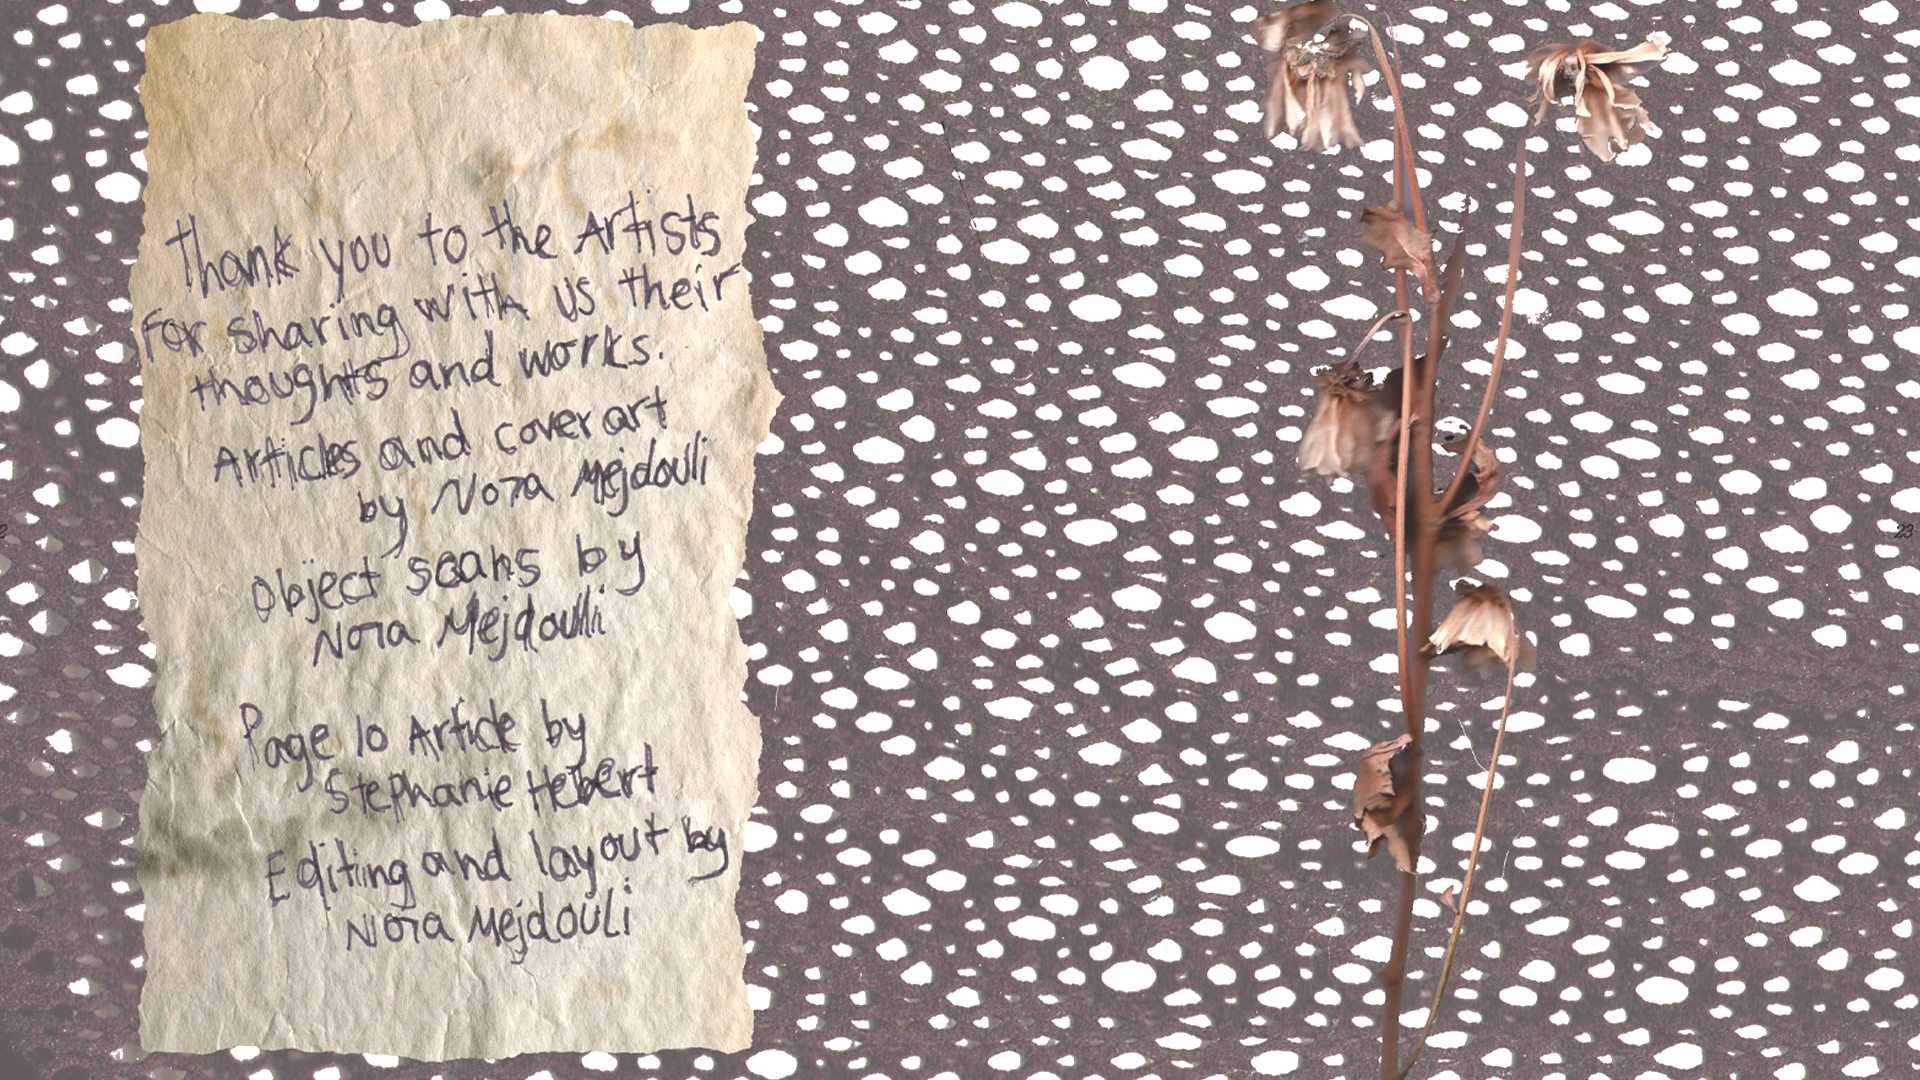 Thank you to the Artists
For sharing with us their
thoughts and works.
Articles and cover art
by Nora Mejdouli
Object scans by
Nora Mejdouli
Page 10 Article by
Stephanie Hebert
Editing and layout by
Nora Mejdouli
23